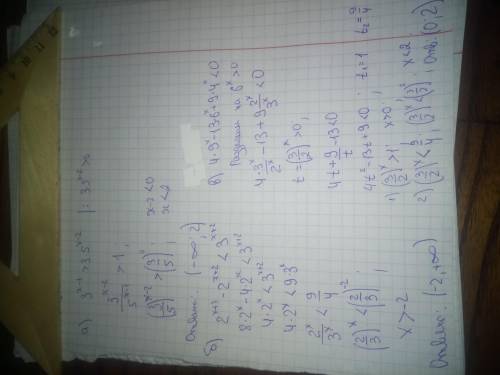 а) 3^{x-2} > 3 5^{x-2} | : 3 5^{x-2} >
3^{x-2} / 5^{x-2} > 1 ;
(3/5)^{x-2} > (3/5)^0 ; x-2 < 0
x < 2
Ответ: (-∞; 2)
б) 2^{x+3} - 2^{x+2} < 3^{x+2}
8·2^x - 4·2^x < 3^{x+2}
4·2^x < 3^{x+2}
4·2^x < 9·3^x
2^x / 3^x < 9/4
(2/3)^x < (2/3)^{-2} ;
x > -2
Ответ: (-2, +∞)
в) 4·9^x - 13·6^x + 9·4^x < 0
Разделим на 6^x > 0
4·3^x / 2^x - 13 + 9 2^x / 3^x < 0
t = (3/2)^x > 0 ;
4t + 9/t - 13 < 0
4t² - 13t + 9 < 0 ; t₁ = 1 t₂ = 9/4
1) (3/2)^x > 1 ; x > 0
2) (3/2)^x < 9/4 ; (3/2)^x < (3/2)² ; x < 2
Отв: (0; 2)